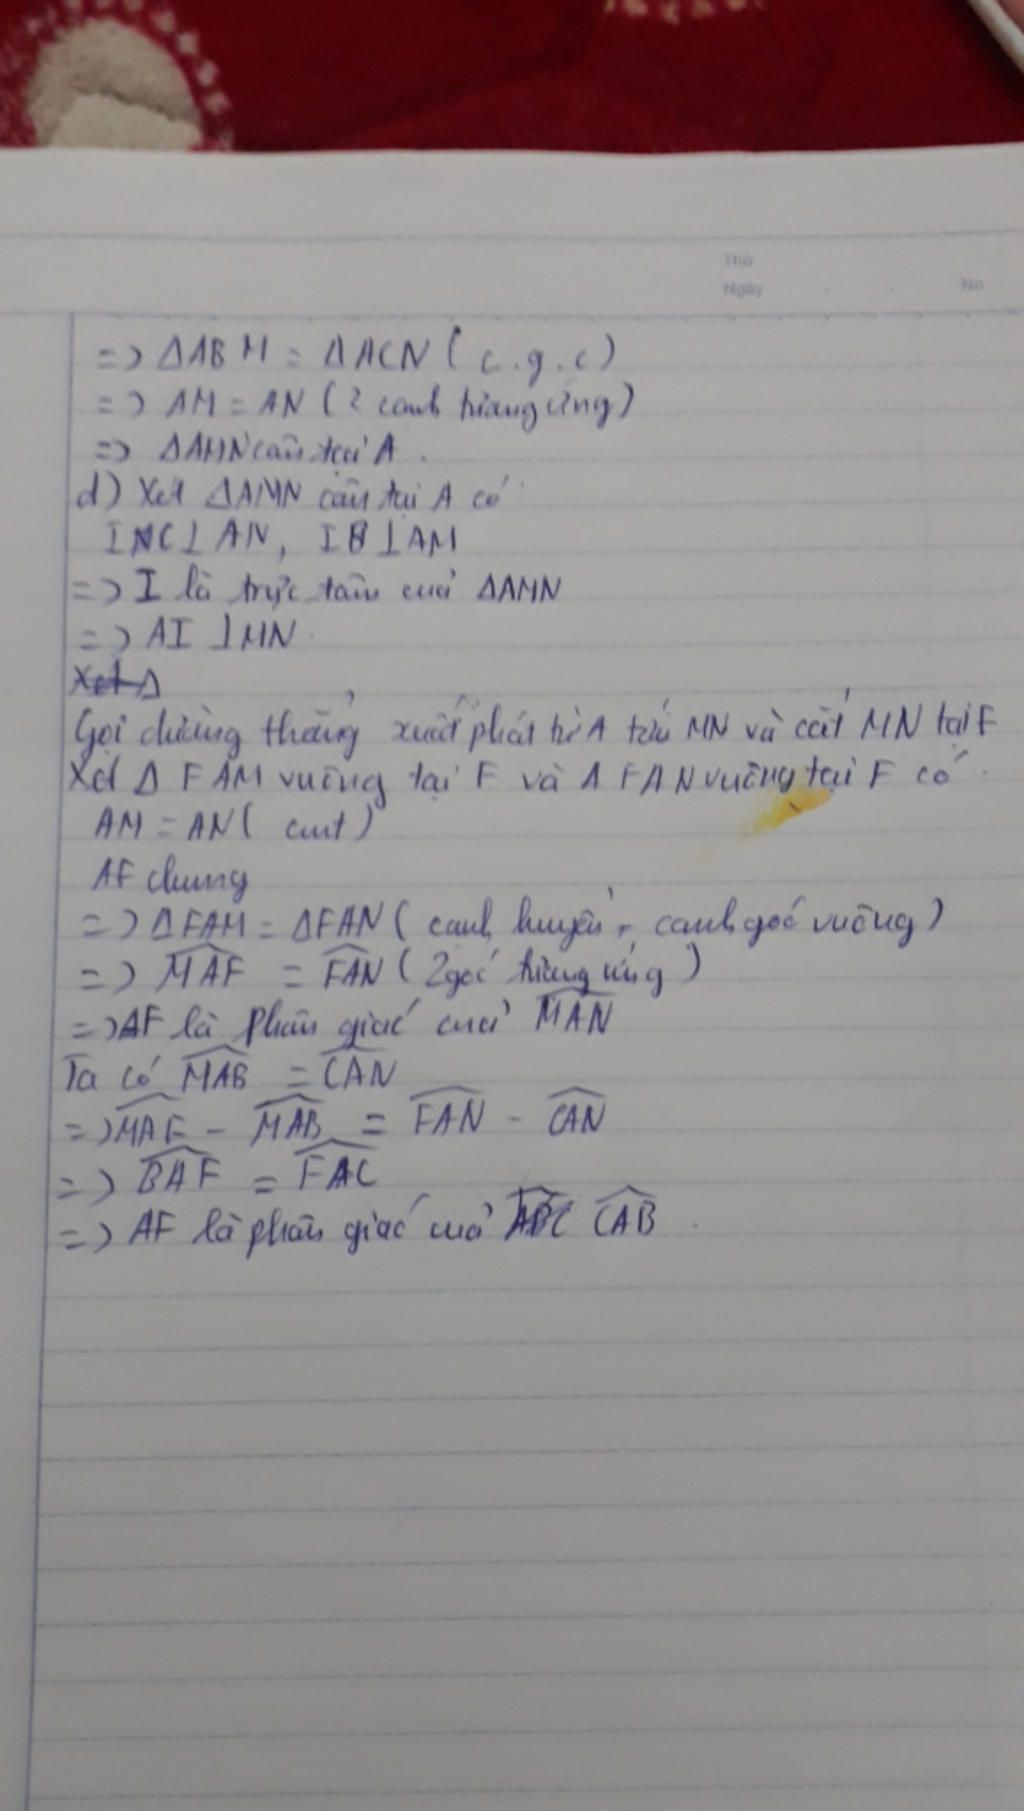 Thứ
Ngày
No.
=> ΔABM = ΔACN ( c.g.c)
=> AM = AN (2 cạnh tương ứng)
=> ΔAMN cân tại A.
d) Xét ΔAMN cân tại A có:
INC⊥AN, IB⊥AM
=> I là trực tâm của ΔAMN
=> AI ⊥MN.
Xét Δ
Gọi đường thẳng xuất phát từ A tới MN và cắt MN tại F
Xét Δ FAM vuông tại F và Δ FAN vuông tại F có.
AM = AN ( cmt)
AF chung
=> ΔFAM = ΔFAN ( cạnh huyền, cạnh góc vuông)
=> \widehat{MAF} = \widehat{FAN} (2góc tương ứng)
=> AF là phân giác của \widehat{MAN}
Ta có \widehat{MAB} = \widehat{CAN}
=> \widehat{MAF} - \widehat{MAB} = \widehat{FAN} - \widehat{CAN}
=> \widehat{BAF} = \widehat{FAC}
=> AF là phân giác của \widehat{ABC} \widehat{CAB}.